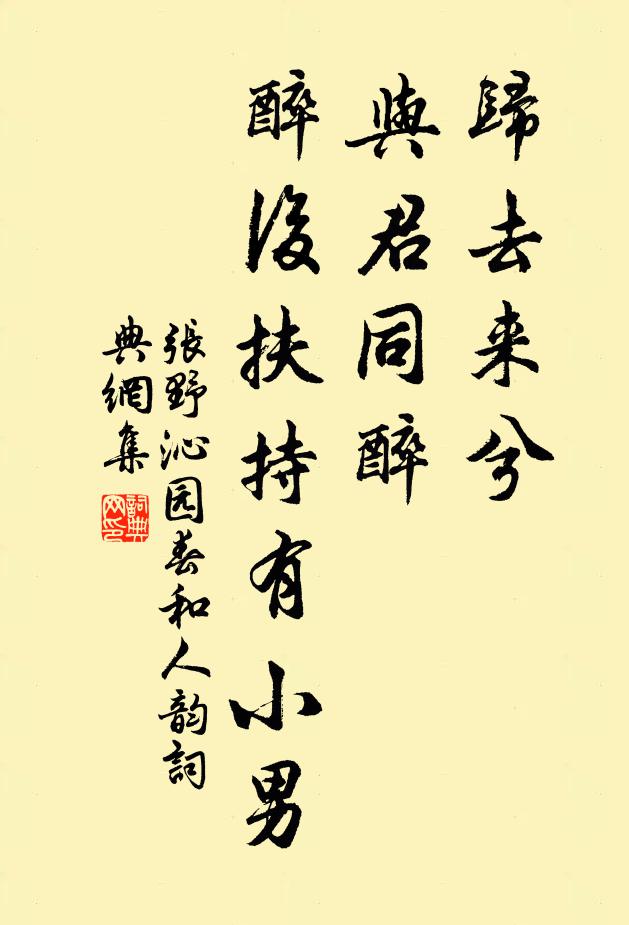 歸去来兮
與君同醉
醉後扶持有小男
張野沁园春和人韵詞
典網集
詞典網印